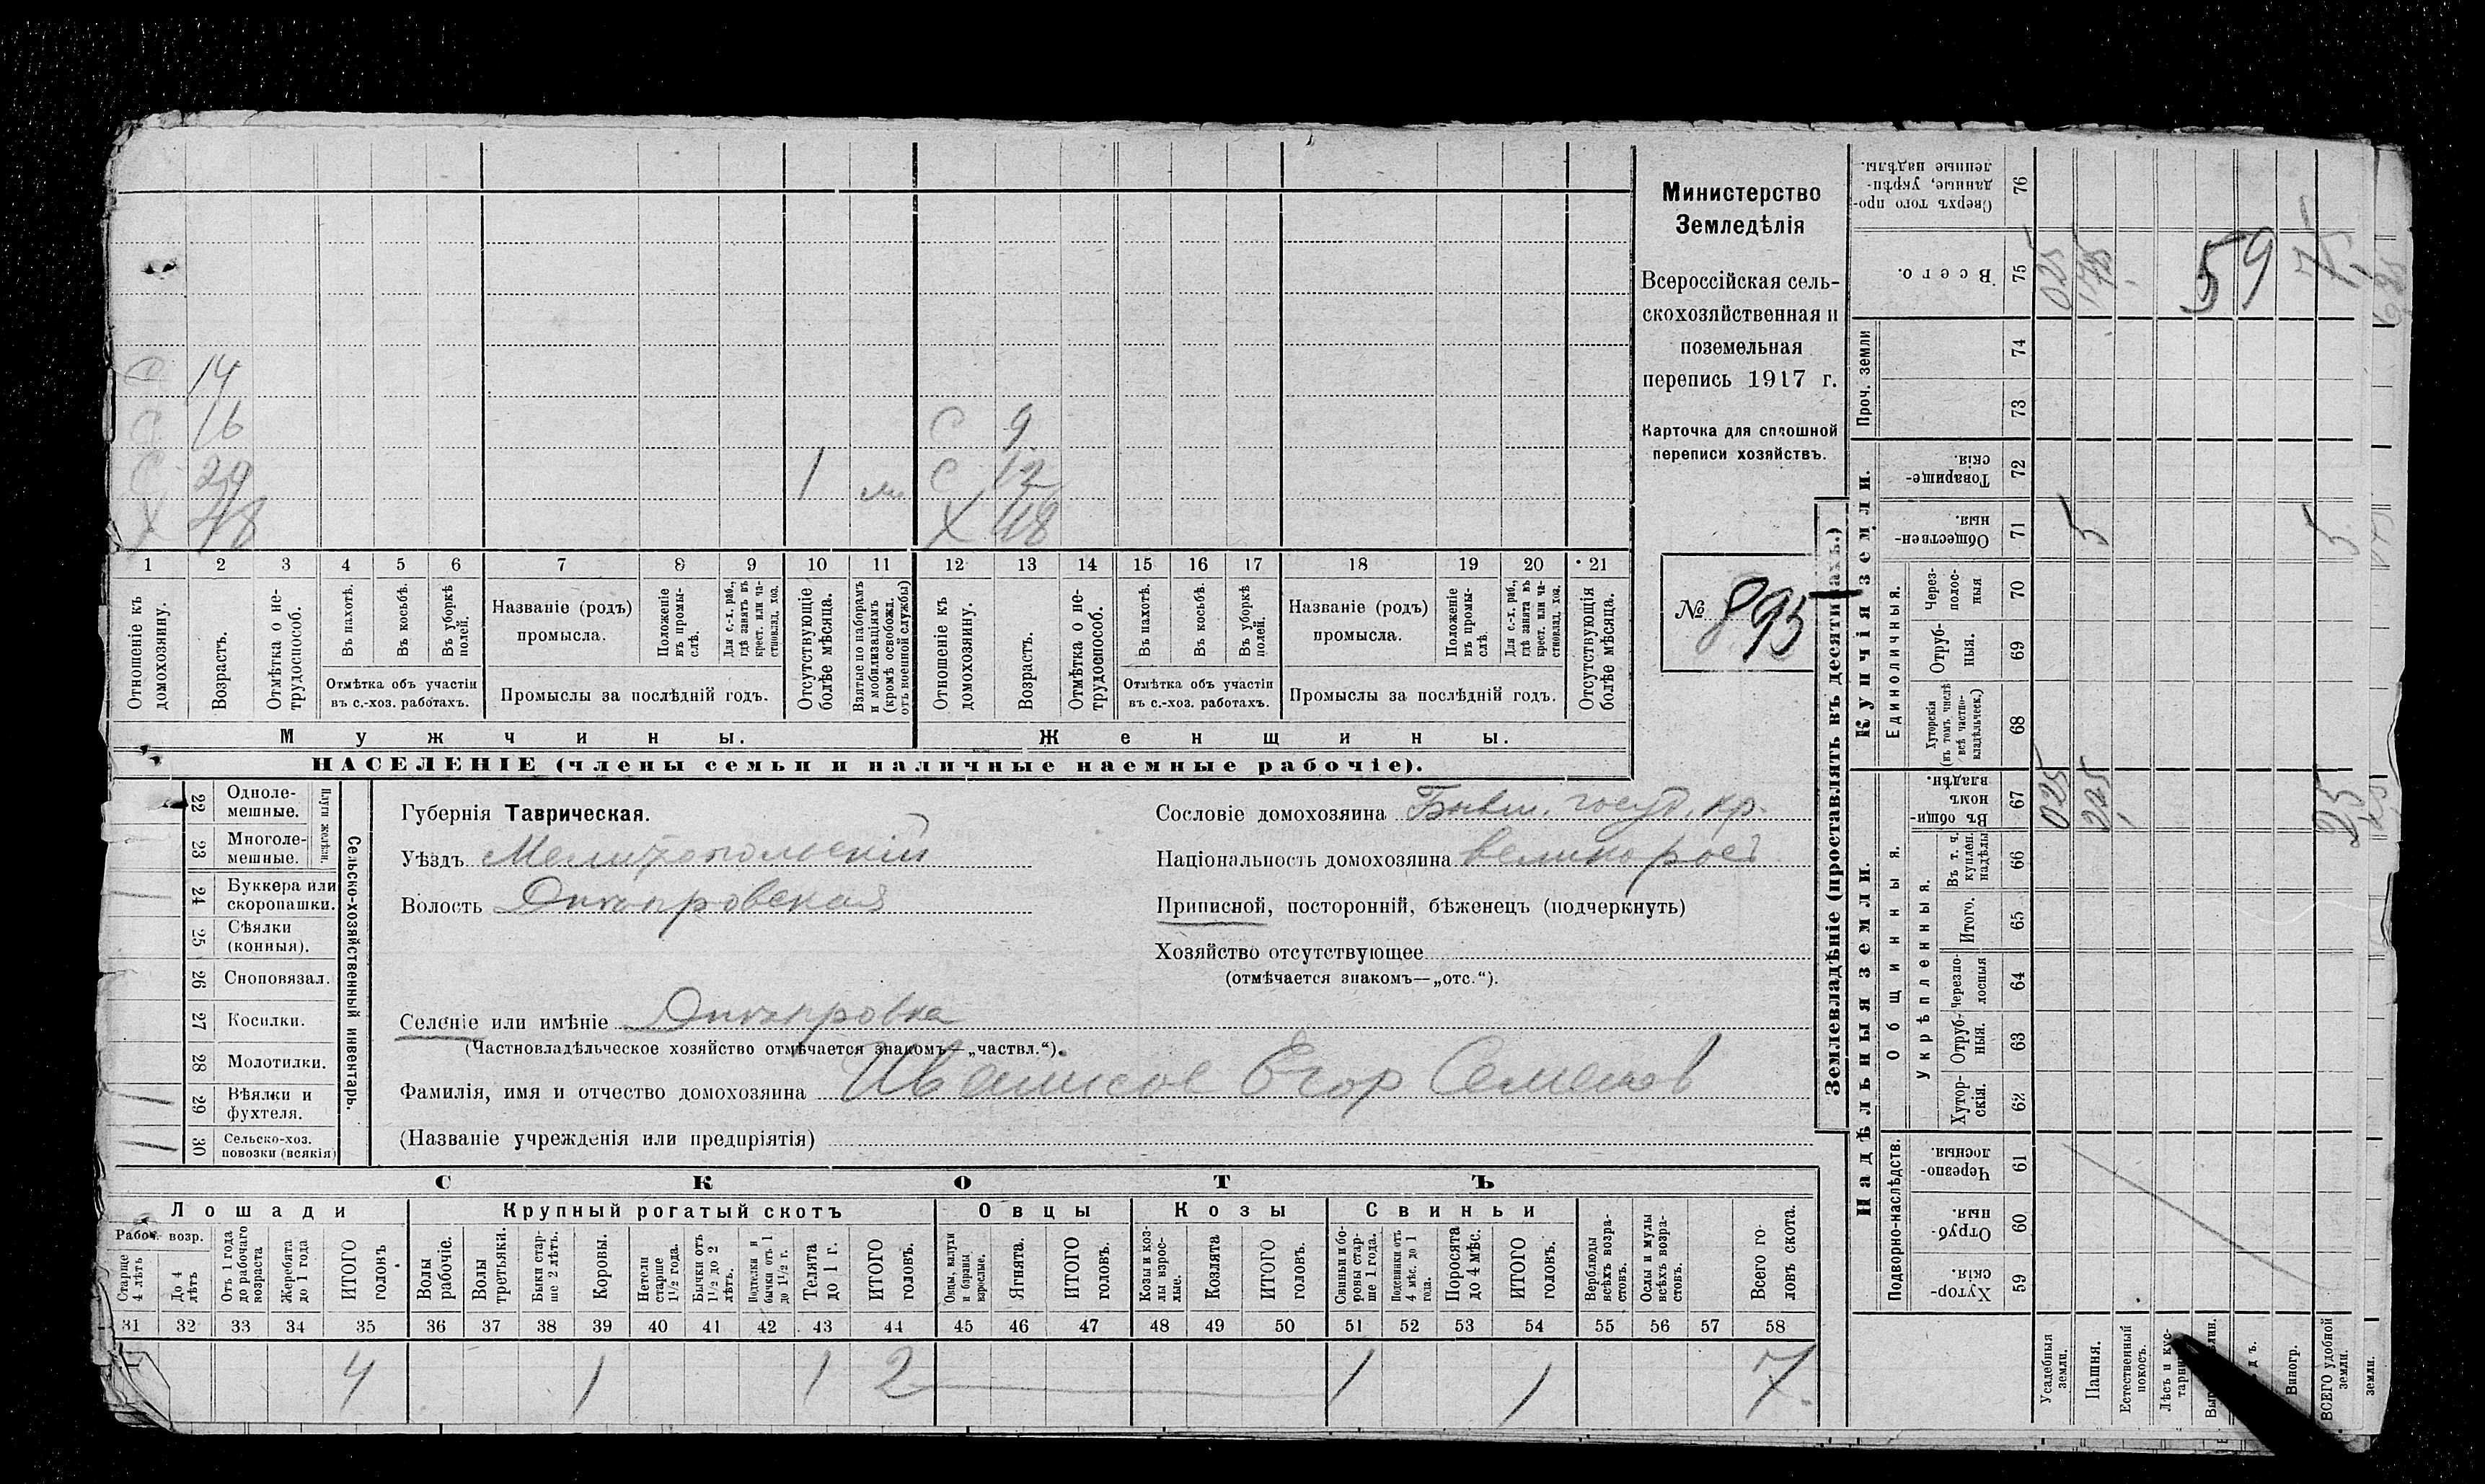 Министерство
Земледѣлія
Всероссійская сель-
скохозяйственная и
поземельная
перепись 1917 г.
Карточка для сплошной
переписи хозяйствъ.
№ 895
С 14
С 16 С 9
С 29 1 С 12
Х 48 Х 48
1 2 3 4 5 6 7 8 9 10 11 12 13 14 15 16 17 18 19 20 21
Отношеніе къ домохозяину.
Возрастъ.
Отмѣтка о не-трудоспособ.
Въ пахотѣ.
Въ косьбѣ.
Въ уборкѣ полей.
Отмѣтка объ участіи
въ с.-хоз. работахъ.
Названіе (родъ)
промысла.
Положеніе въ промы-слѣ.
Для с.-х. раб., гдѣ занятъ въ крест. или ча-стновлад. хоз.
Промыслы за послѣдній годъ.
Отсутствующіе болѣе мѣсяца.
Взятые по наборамъ и мобилизаціямъ (кромѣ освобожд. отъ военной службы)
Отношеніе къ домохозяину.
Возрастъ.
Отмѣтка о не-трудоспособ.
Въ пахотѣ.
Въ косьбѣ.
Въ уборкѣ полей.
Отмѣтка объ участіи
въ с.-хоз. работахъ.
Названіе (родъ)
промысла.
Положеніе въ промы-слѣ.
Для с.-х. раб., гдѣ занята въ крест. или ча-стновлад. хоз.
Промыслы за послѣдній годъ.
Отсутствующія болѣе мѣсяца.
Мужчины. Женщины.
НАСЕЛЕНІЕ (члены семьи и наличные наемные рабочіе).
Сельско-хозяйственный инвентарь.
Плуги желѣзн.
22 Одноле-мешные.
23 Многоле-мешные.
24 Буккера или скоропашки.
25 Сѣялки (конныя).
26 Сноповязал.
27 Косилки.
28 Молотилки.
29 Вѣялки и фухтеля.
30 Сельско-хоз. повозки (всякія)
Губернія Таврическая.
Уѣздъ Мелитопольскій
Волость Днѣпровская
Селеніе или имѣніе Днѣпровка
(Частновладѣльческое хозяйство отмѣчается знакомъ—„частвл.“).
Фамилія, имя и отчество домохозяина Егор Семенов
(Названіе учрежденія или предпріятія)
Сословіе домохозяина Бывш. госуд. кр.
Національность домохозяина великорос
Приписной, посторонній, бѣженецъ (подчеркнуть)
Хозяйство отсутствующее
(отмѣчается знакомъ—„отс.“).
СКОТЪ
Лошади Крупный рогатый скотъ Овцы Козы Свиньи
Рабоч. возр.
Старше 4 лѣтъ
До 4 лѣтъ
Отъ 1 года до рабочаго возраста
Жеребята до 1 года
ИТОГО головъ
Волы рабочіе.
Волы третьяки.
Быки стар-ше 2 лѣтъ.
Коровы.
Нетели старше 1½ года.
Бычки отъ 1½ до 2 лѣтъ.
Подтелки и бычки отъ 1 до 1½ г.
Телята до 1 г.
ИТОГО головъ.
Овцы, валухи и бараны взрослые.
Ягнята.
ИТОГО головъ.
Козы и коз-лы взрос-лые.
Козлята
ИТОГО головъ.
Свиньи и бо-ровы стар-ше 1 года.
Подсвинки отъ 4 мѣс. до 1 года.
Поросята до 4 мѣс.
ИТОГО головъ.
Верблюды всѣхъ возра-стовъ.
Ослы и мулы всѣхъ возра-стовъ.
Всего го-ловъ скота.
31 32 33 34 35 36 37 38 39 40 41 42 43 44 45 46 47 48 49 50 51 52 53 54 55 56 57 58
4 1 1 2 1 1 7
Землевладѣніе (проставлять въ десятинахъ.)
Купчія земли.
Надѣльныя земли.
Сверхъ того про-данные, укрѣп-ленные надѣлы. 76
Всего. 75 025 59
Проч. земли 74 73
Товарище-скія. 72
Обществен-ныя. 71 5 5
Единоличныя.
Черезполос-ныя 70
Отруб-ныя. 69
Хуторскія (въ томъ числѣ всѣ частно-владѣльческ.) 68
Общинныя.
Въ общи-номъ владѣн. 67 025 225
Укрѣпленныя.
Въ т. ч. куплен. надѣлы 66
Итого. 65
Черезпо-лосныя 64
Отруб-ныя. 63
Хутор-скія. 62
Подворно-наслѣдств.
Черезпо-лосныя. 61
Отруб-ныя. 60
Хутор-скія. 59
Усадебныя земли.
Пашня.
Естественный покосъ.
Лѣсъ и кус-тарни
Виногр.
ВСЕГО удобной земли.
земли.